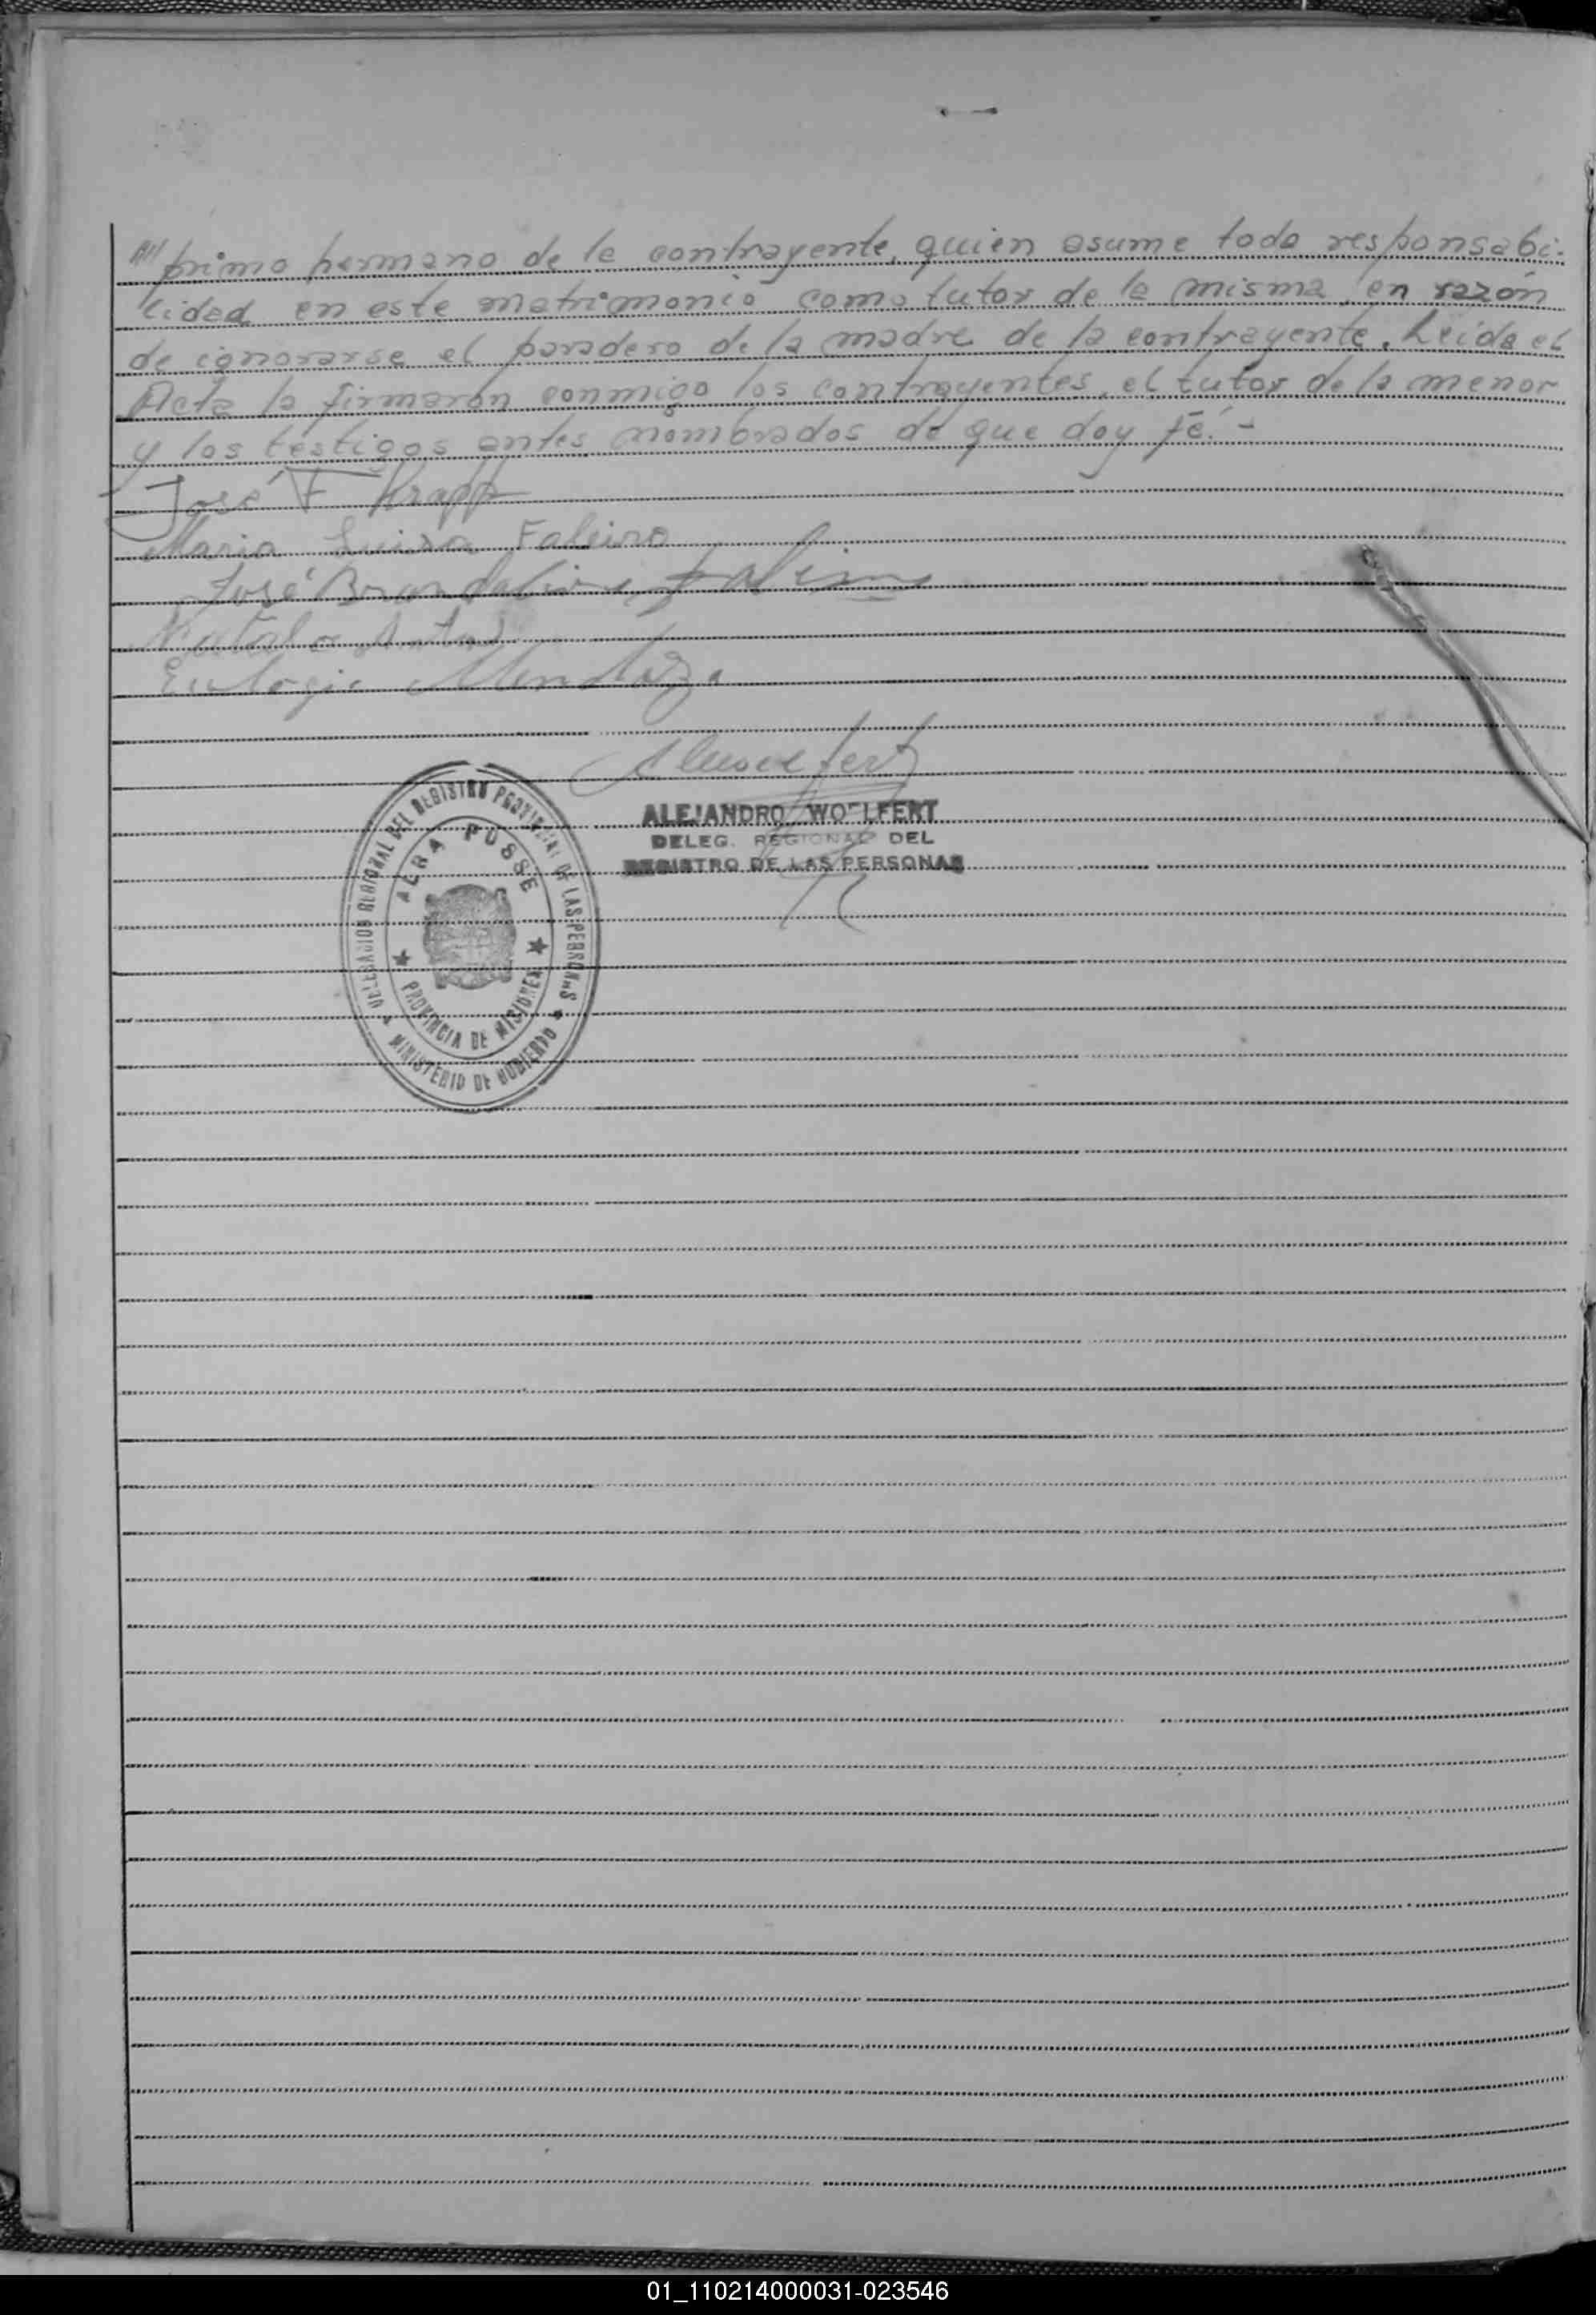 //// primo hermano de la contrayente, quien asume toda responsabi-
lidad en este matrimonio como tutor de la misma, en razón
de ignorarse el paradero de la madre de la contrayente. Leida el
Acta la firmaron conmigo los contrayentes, el tutor de la menor
y los testigos antes nombrados de que doy fé.-
José F Krapp
Maria Luisa Faleiro
José
Eulogio Mendoza
ALEJANDRO WOELFERT
DELEG. REGIONAL DEL
REGISTRO DE LAS PERSONAS
DELEGACION REGIONAL DEL REGISTRO PROVINCIAL DE LAS PERSONAS
ALBA POSSE
PROVINCIA DE MISIONES
MINISTERIO DE GOBIERNO
01_110214000031-023546